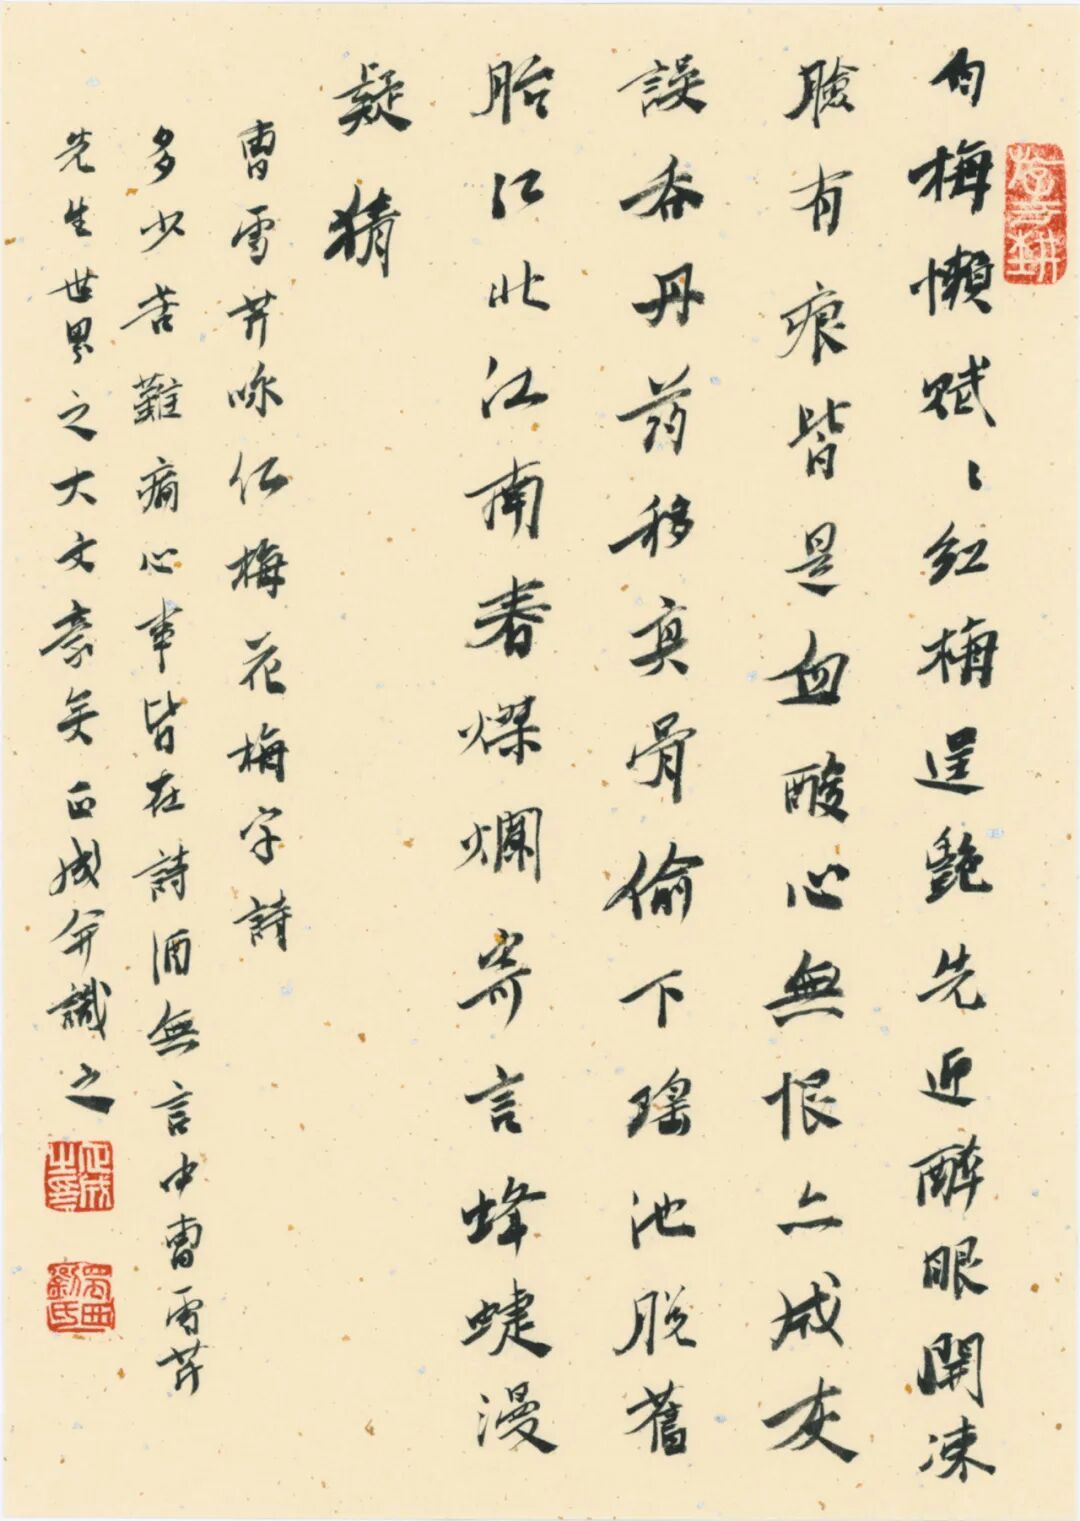 白梅懶賦〻紅梅逞艷先迎醉眼開凍
臉有痕皆是血酸心無恨亦成灰
誤吞丹药移真骨偷下瑤池脱舊
胎江北江南春燦爛寄言蜂蜨漫
疑猜
曹雪芹咏红梅花梅字詩
多少苦難痛心事皆在詩酒無言中曹雪芹
先生世界之大文豪矣正成并識之
正成之印
劉氏